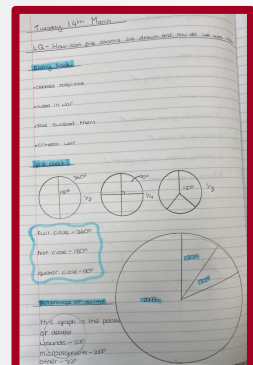 Tuesday 14th March
LQ - How can pie charts be drawn and how do we use
Entry Task
•cleaned hospitals
•nurse in war
•she sussed them
•crimean war
Pie chart
360°
180°
1/2
90°
1/4
120°
1/3
Full circle = 360°
half circle = 180°
quater circle = 90°
Percentage of deaths
this graph is the
of deaths
wounds -
other -